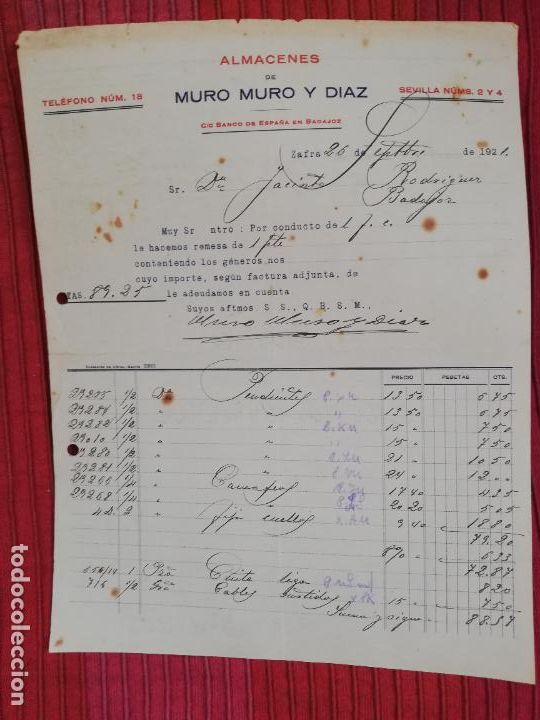 ALMACENES
DE
MURO MURO Y DIAZ
TELÉFONO NÚM. 18
SEVILLA NÚMS. 2 Y 4
C/C BANCO DE ESPAÑA EN BADAJOZ
Zafra 26 de Septbre de 1921.
Sr. Dn Jacinto Rodriguez
Badajoz
Muy Sr ntro : Por conducto de 1 f. c.
le hacemos remesa de 1 pte
conteniendo los géneros nos
cuyo importe, según factura adjunta, de
TAS. 89.25 le adeudamos en cuenta
Suyos aftmos S S., Q. B. S M.,
Muro Muro y Diaz
PRECIO PESETAS CTS.
23295 1/2 Dn Pendientes 13 50 6 75
23284 1/2 " " 13 50 6 75
23282 1/2 " " 15 " 7 50
23010 1/2 " " 15 " 7 50
23280 1/2 " " 21 " 10 50
23281 1/2 " " 24 " 12 "
23266 1/4 " 17 40 4 35
23268 1/4 " " 20 20 5 05
42 2 " cuellos 9 40 18 80
79 20
8% 6 33
72 87
1 liga 8 20
7/6 1/2 Cables surtidos 15 " 7 50
Suma y sigue 88 57
todocoleccion